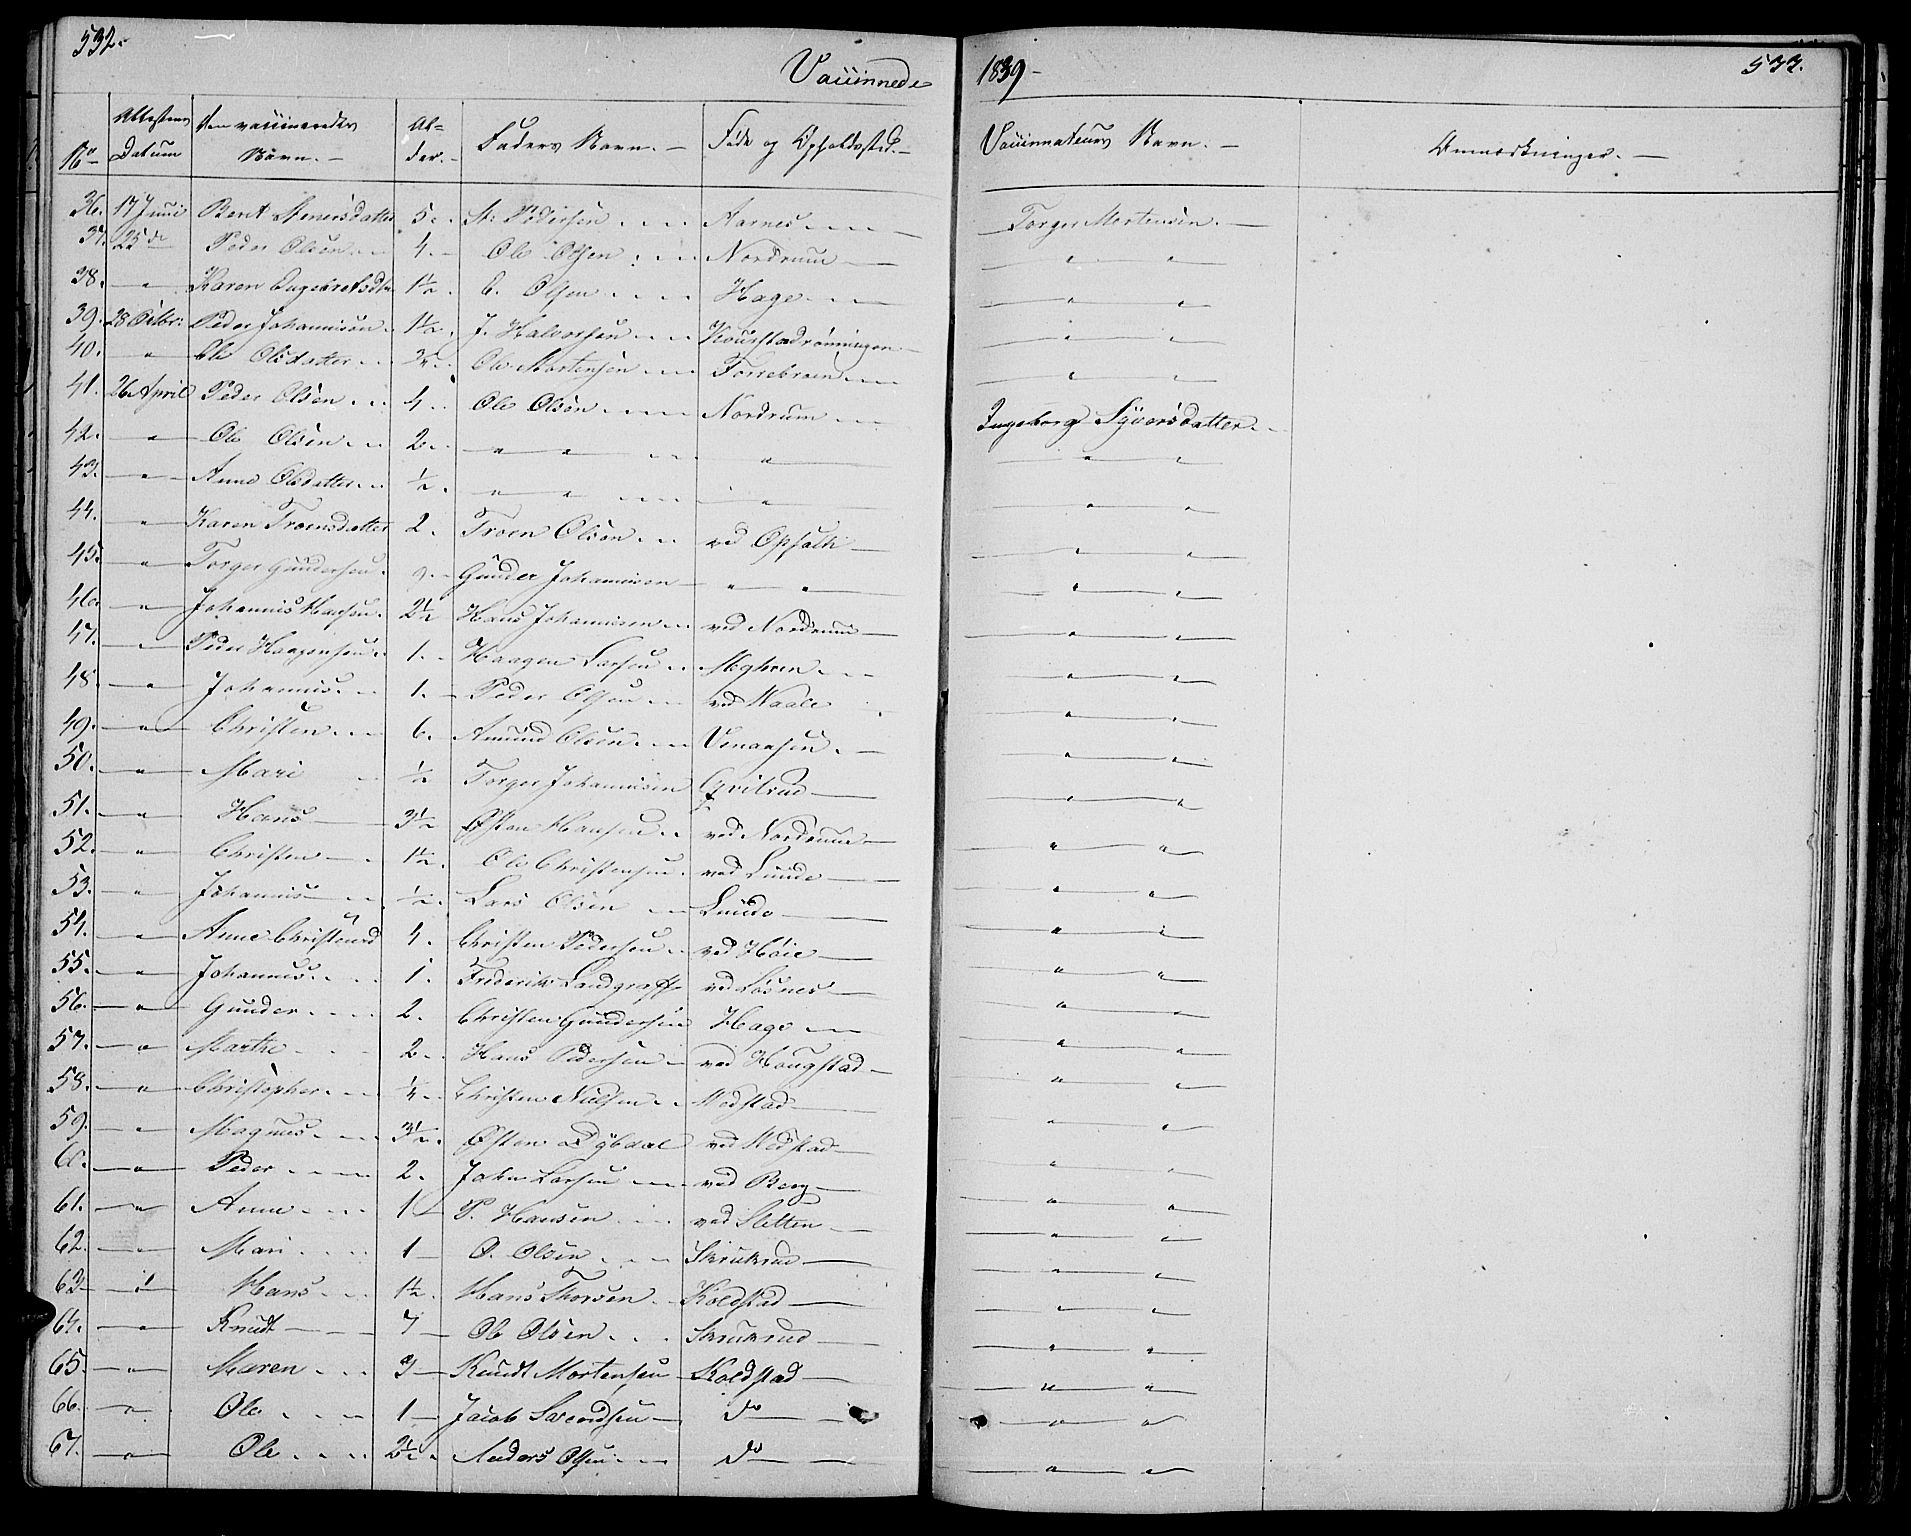 532.
Vaccinnede
1839 -
533.
No - Attestens Datum den vaccineredes Navn. - Al= der. - Faders Navn. - Føde og Opholdssted. - Vaccinnateurs Navn. - Anmærkninger. -
36. 17 Juni Berit Stenersdatter 5. St: Pedersen Aarnes Torger Mortensen. -
37. 25 de Peder Olsen 4. - Ole Olsen Nordrum " "
38. " Karen Engebretsdtr 1½ E. Olsen Hage " "
39. 28 Octbr: Peder Johannisen 1½ J. Halvorsen " "
40. " Ole Olsdatter Ole Mortensen " "
41. 26 April Peder Olsen 4. Ole Olsen Nordrum Ingeborg Syversdatter. -
42. " Ole Olsen 2. " " " " "
43. " Anne Olsdatter ½ " " " " "
44. " Karen Troensdatter 2. Troen Olsen ved Opsalh " "
45. " Torger Gundersen Gunder Johannisen " " " "
46. " Johannis Hansen 2½ Hans Johannisen ved Nordrum " "
47. " Peder Haagensen 1. - Haagen Larsen Myhren " "
48. " Johannis 1. - Peder Olsen ved " "
49. " Christen 6. Amund Olsen " "
50. " Mari ½ Torger Johannisen " "
51. " Hans 3½ Østen Hansen ved Nordrum " "
52. " Christen 1½ Ole Christensen ved Lunde " "
53. " Johannis ½ Lars Olsen Lunde " "
54. " Anne Christensd 4. Christen Pedersen ved Høie " "
55. " Johannis 1. Frederik Landgraff ved Løsnes " "
56. " Gunder 2. Christen Gundersen Hage " "
57. " Marthe 2. Hans Pedersen ved Hougstad " "
58. " Christopher ¼ Christen Nielsen Medstad " "
59. " Magnus 3½ Østen Dybdal ved Medstad " "
60. " Peder 2. John Larsen ved Berg " "
61. " Anne 1 P. Hansen ved Sletten " "
62. " Mari 1 O. Olsen Skrukrud " "
63 " Hans 1½ Hans Thorsen Koldstad " "
64. " Knudt 7 Ole Olsen Skrukrud " "
65. " Maren Knudt Mortensen Koldstad " "
66. " Ole 1 Jacob Svendsen do " "
67. " Ole 2½ Anders Olsen do " "